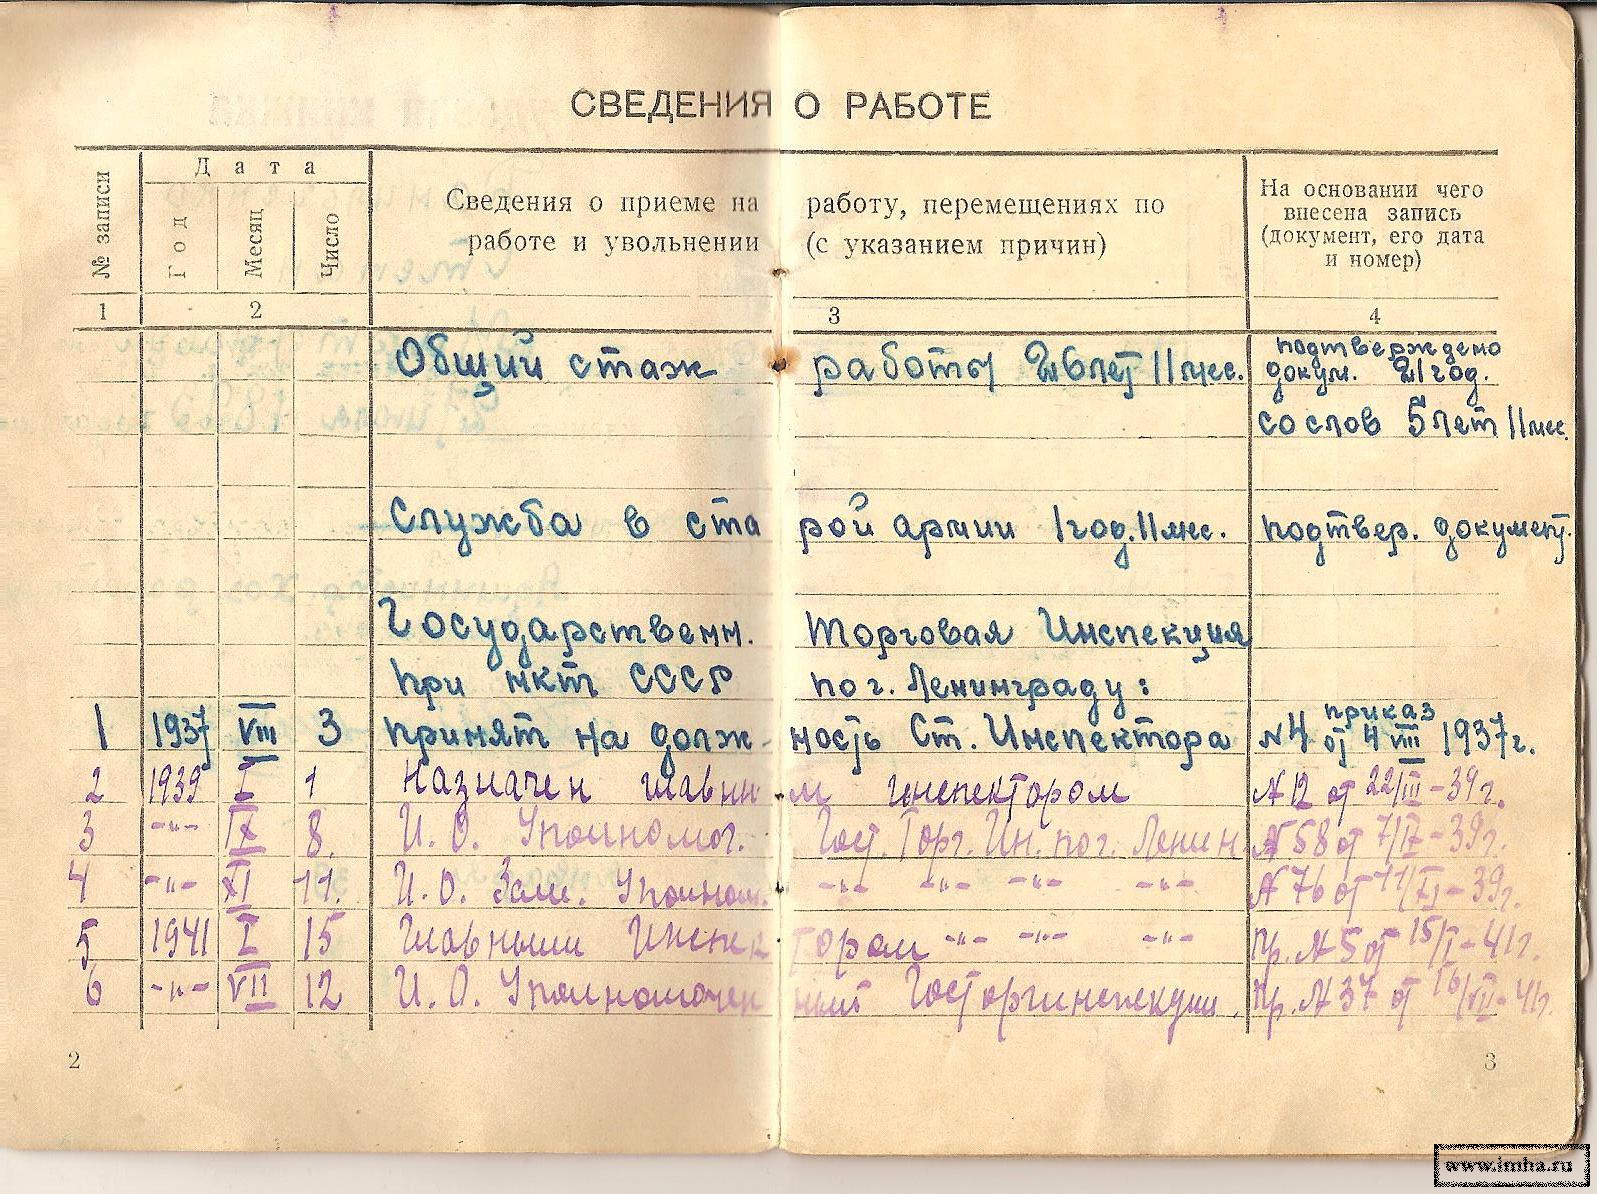 СВЕДЕНИЯ О РАБОТЕ
№ записи
Дата
Год
Месяц
Число
Сведения о приеме на работу, перемещениях по
работе и увольнении (с указанием причин)
На основании чего
внесена запись
(документ, его дата
и номер)
1 2 3 4
Общий стаж работы 26 лет 11 мес. подтверждено
докум. 21 год.
со слов 5 лет 11 мес.
Служба в старой армии 1 год. 11 мес. подтвер. документ.
Государственн. Торговая Инспекция
при НКТ СССР по г. Ленинграду:
1 1937 VIII 3 принят на должность Ст. Инспектора приказ №4 от 4 VIII 1937 г.
2 1939 I 1 Назначен главным инспектором №12 от 22/III-39 г.
3 -"- IX 8. И. О. Уполномог. Гост. Торг. Ин. по г. Ленин. №58 от 7/IX-39 г.
4 -"- XI 11. И. О. Зам. Уполном. -"- -"- -"- -"- №76 от 11/XI-39 г.
5 1941 I 15 Главным Инспектором -"- -"- -"- Пр. №5 от 15/I-41 г.
6 -"- VII 12 И. О. Уполномоченный Госторгинспекции. Пр. №37 от 16/VII-41 г.
2 3
www.imha.ru